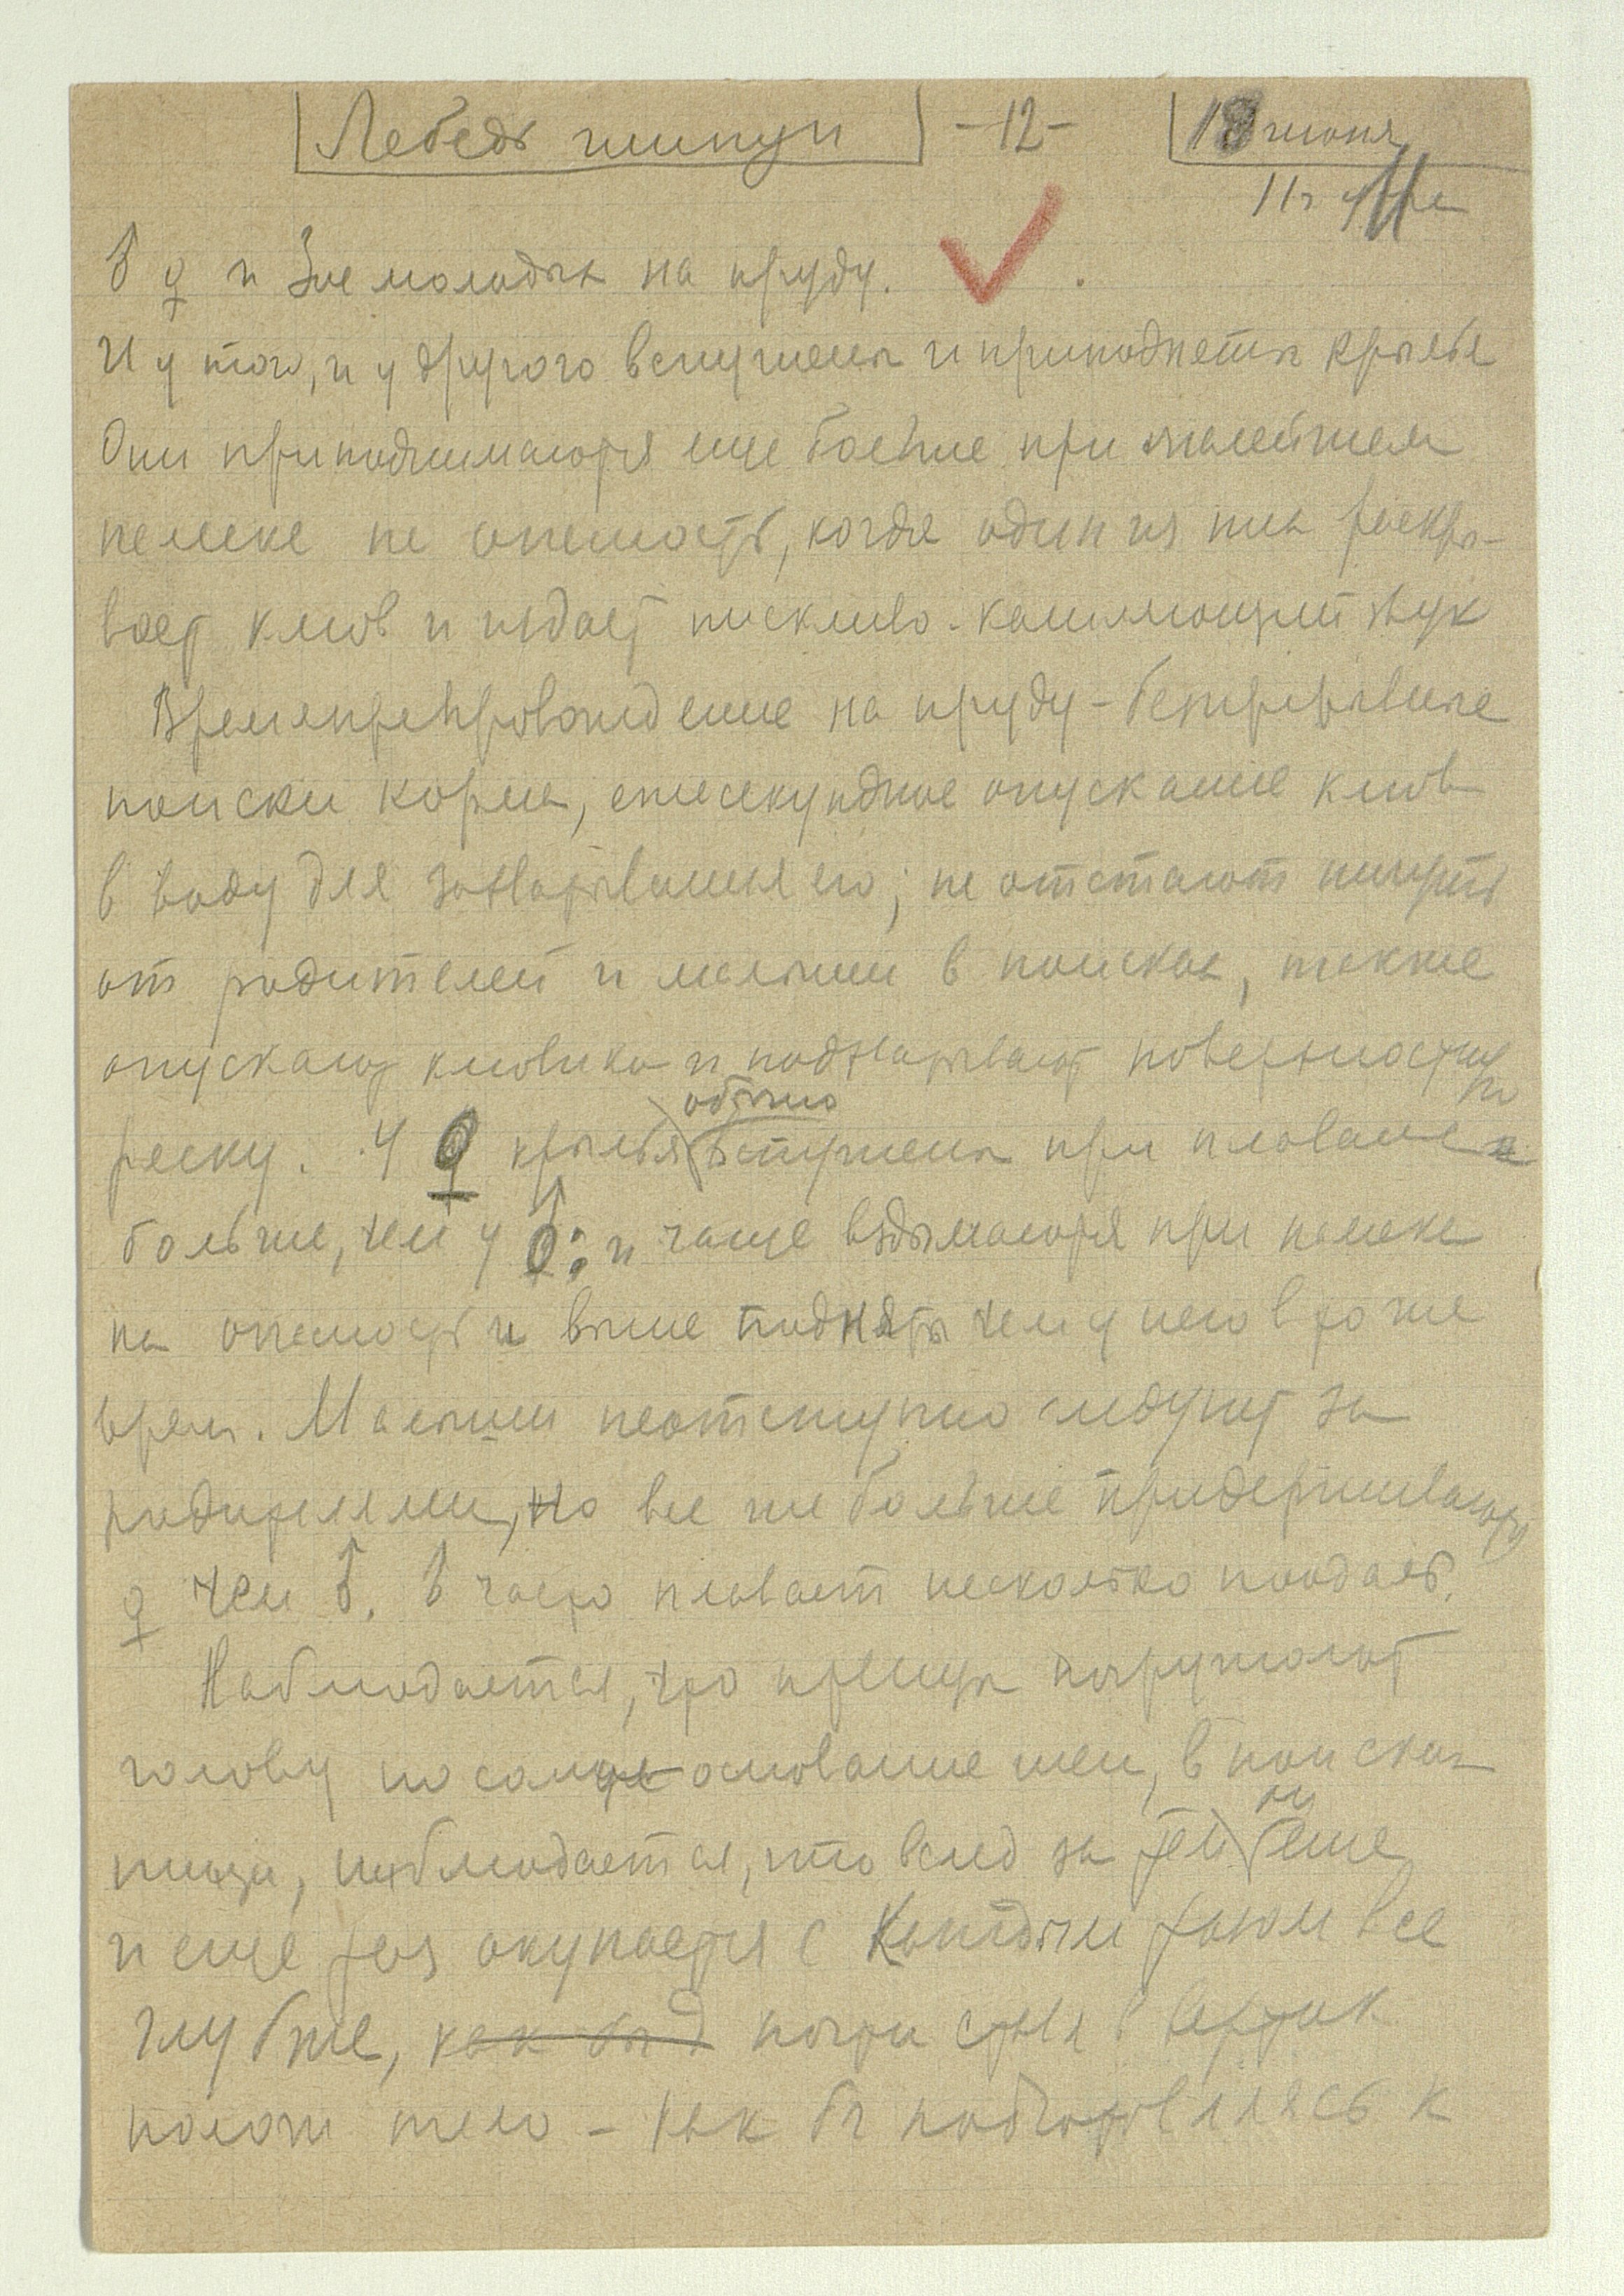 Лебедь шипун -12- 18 июня
11ч утра
♂ ♀ и 3ое молодых на пруду.
И у того, и у другого вспушены и приподняты крылья
Они приподнимаются еще более при малейшем
намеке на опасность, когда один из них раскры-
вает клюв и издает пискливо-кашляющий звук
Времяпрепровождение на пруду - беспрерывные
поиски корма, ежесекундное опускание клюва
в воду для захватывания его; не отстают ничуть
от родителей и малыши в поисках, также
опускают клювики и подхватывают поверхностную
ряску. У ♀ крылья обычно вспушены при плавании
больше, чем у ♂: и чаще вздымаются при намеке
на опасность и выше подняты чем у него в то же
время. Малыши неотступно следуют за
родителями, но все же больше придерживаются
♀ чем ♂. ♂ часто плавает несколько поодаль.
Наблюдается, что птицы погружают
голову по самое основание шеи, в поисках
пищи, наблюдается, что вслед за тем
и еще раз окунается с каждым разом все
глубже, как бы почти ставя в вертик
полож тело - как бы подготовляясь к